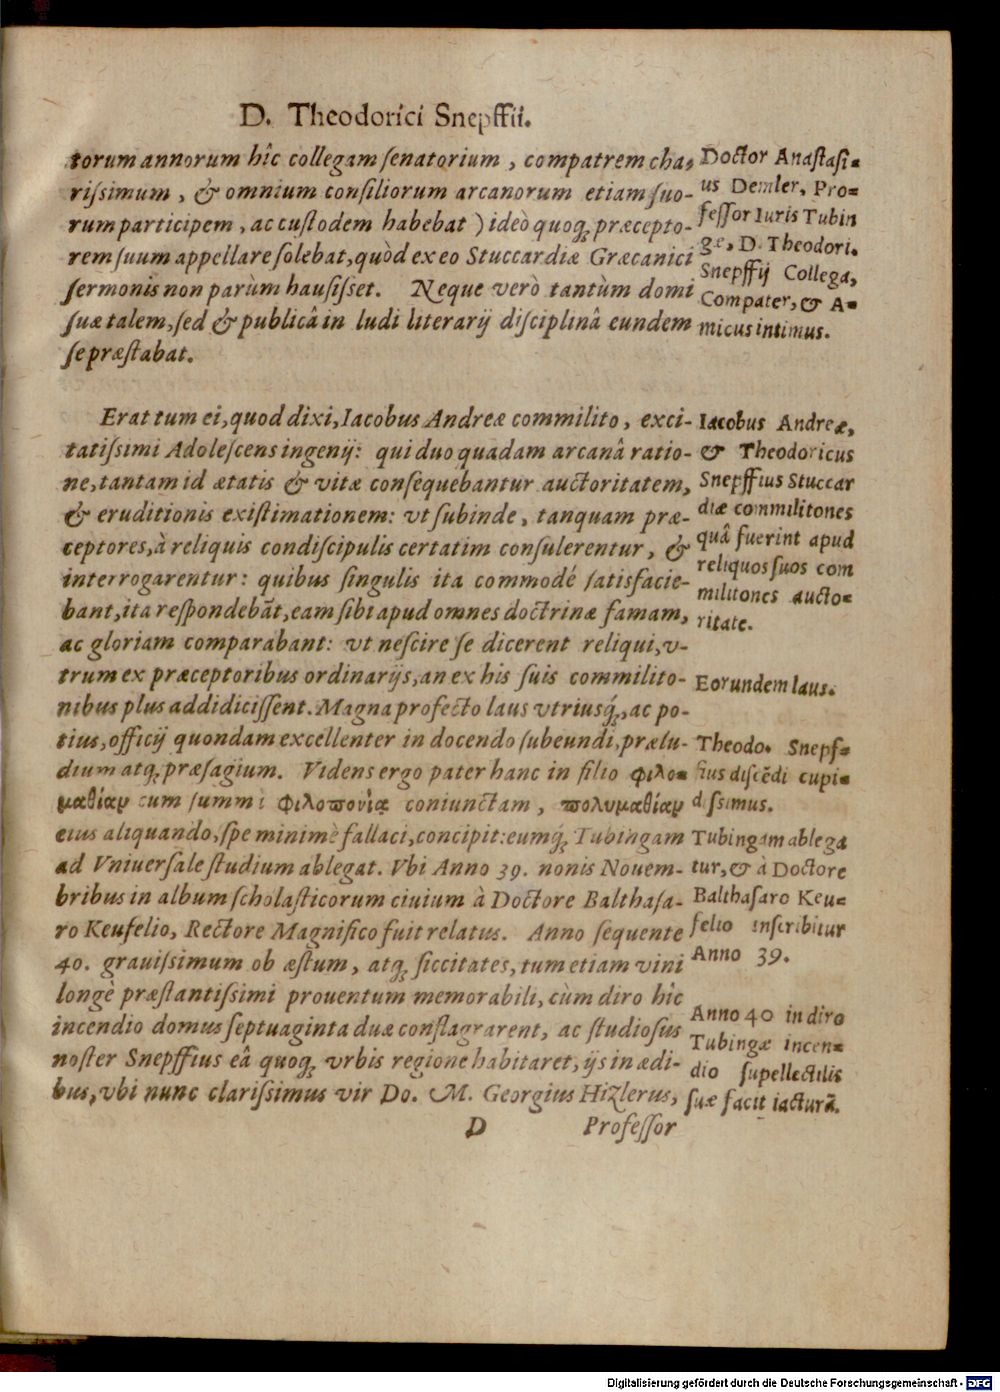 D. Theodorici Snepffii.
torum annorum hîc collegam ſenatorium, compatrem cha-
riſſimum, & omnium conſiliorum arcanorum etiam ſuo-
rum participem, ac cuſtodem habebat) ideò quoq; præcepto-
rem ſuum appellare ſolebat, quòd ex eo Stuccardiæ Græcanici
ſermonis non parùm hauſiſſet. Neque verò tantùm domi
ſuæ talem, ſed & publicâ in ludi literarij diſciplinâ eundem
ſe præſtabat.
Doctor Anaſtaſi=
us Demler, Pro=
feſſor Iuris Tubin
gæ, D. Theodori.
Snepffij Collega,
Compater, & A=
micus intimus.
Erat tum ei, quod dixi, Iacobus Andreæ commilito, exci-
tatiſſimi Adoleſcens ingenij: qui duo quadam arcanâ ratio-
ne, tantam id ætatis & vitæ conſequebantur auctoritatem,
& eruditionis exiſtimationem: vt ſubinde, tanquam præ-
ceptores, à reliquis condiſcipulis certatim conſulerentur, &
interrogarentur: quibus ſingulis ita commodé ſatisfacie-
bant, ita reſpondebãt, eam ſibi apud omnes doctrinæ famam,
ac gloriam comparabant: vt neſcire ſe dicerent reliqui, v-
trum ex præceptoribus ordinarijs, an ex his ſuis commilito-
nibus plus addidiciſſent. Magna profecto laus vtriusq́;, ac po-
tius, officij quondam excellenter in docendo ſubeundi, prælu-
dium atq; præſagium. Videns ergo pater hanc in filio φιλο=
μαθίαν cum ſummi φιλοπονίᾳ coniunctam, πολυμαθίαν
eius aliquando, ſpe minimè fallaci, concipit: eumq́; Tubingam
ad Vniuerſale ſtudium ablegat. Vbi Anno 39. nonis Nouem-
bribus in album ſcholaſticorum ciuium à Doctore Balthaſa-
ro Keufelio, Rectore Magnifico fuit relatus. Anno ſequente
40. grauiſſimum ob æſtum, atq; ſiccitates, tum etiam vini
longè præſtantiſſimi prouentum memorabili, cùm diro hîc
incendio domus ſeptuaginta duæ conflagrarent, ac ſtudioſus
noſter Snepffius eâ quoq; vrbis regione habitaret, ijs in ædi-
bus, vbi nunc clariſſimus vir Do. M. Georgius Hizlerus,
Iacobus Andreæ,
& Theodoricus
Snepffius Stuccar
diæ commilitones
quâ fuerint apud
reliquos ſuos com
militones aucto=
ritate.
Eorundem laus.
Theodo. Snepf=
fius diſcẽdi cupi=
diſſimus.
Tubingam ablega
tur, & à Doctore
Balthaſaro Keu=
felio inſcribitur
Anno 39.
Anno 40 in diro
Tubingæ incen=
dio ſupellectilis
ſuæ facit iacturã.
D Profeſſor
Digitalisierung gefördert durch die Deutsche Forschungsgemeinschaft - DFG